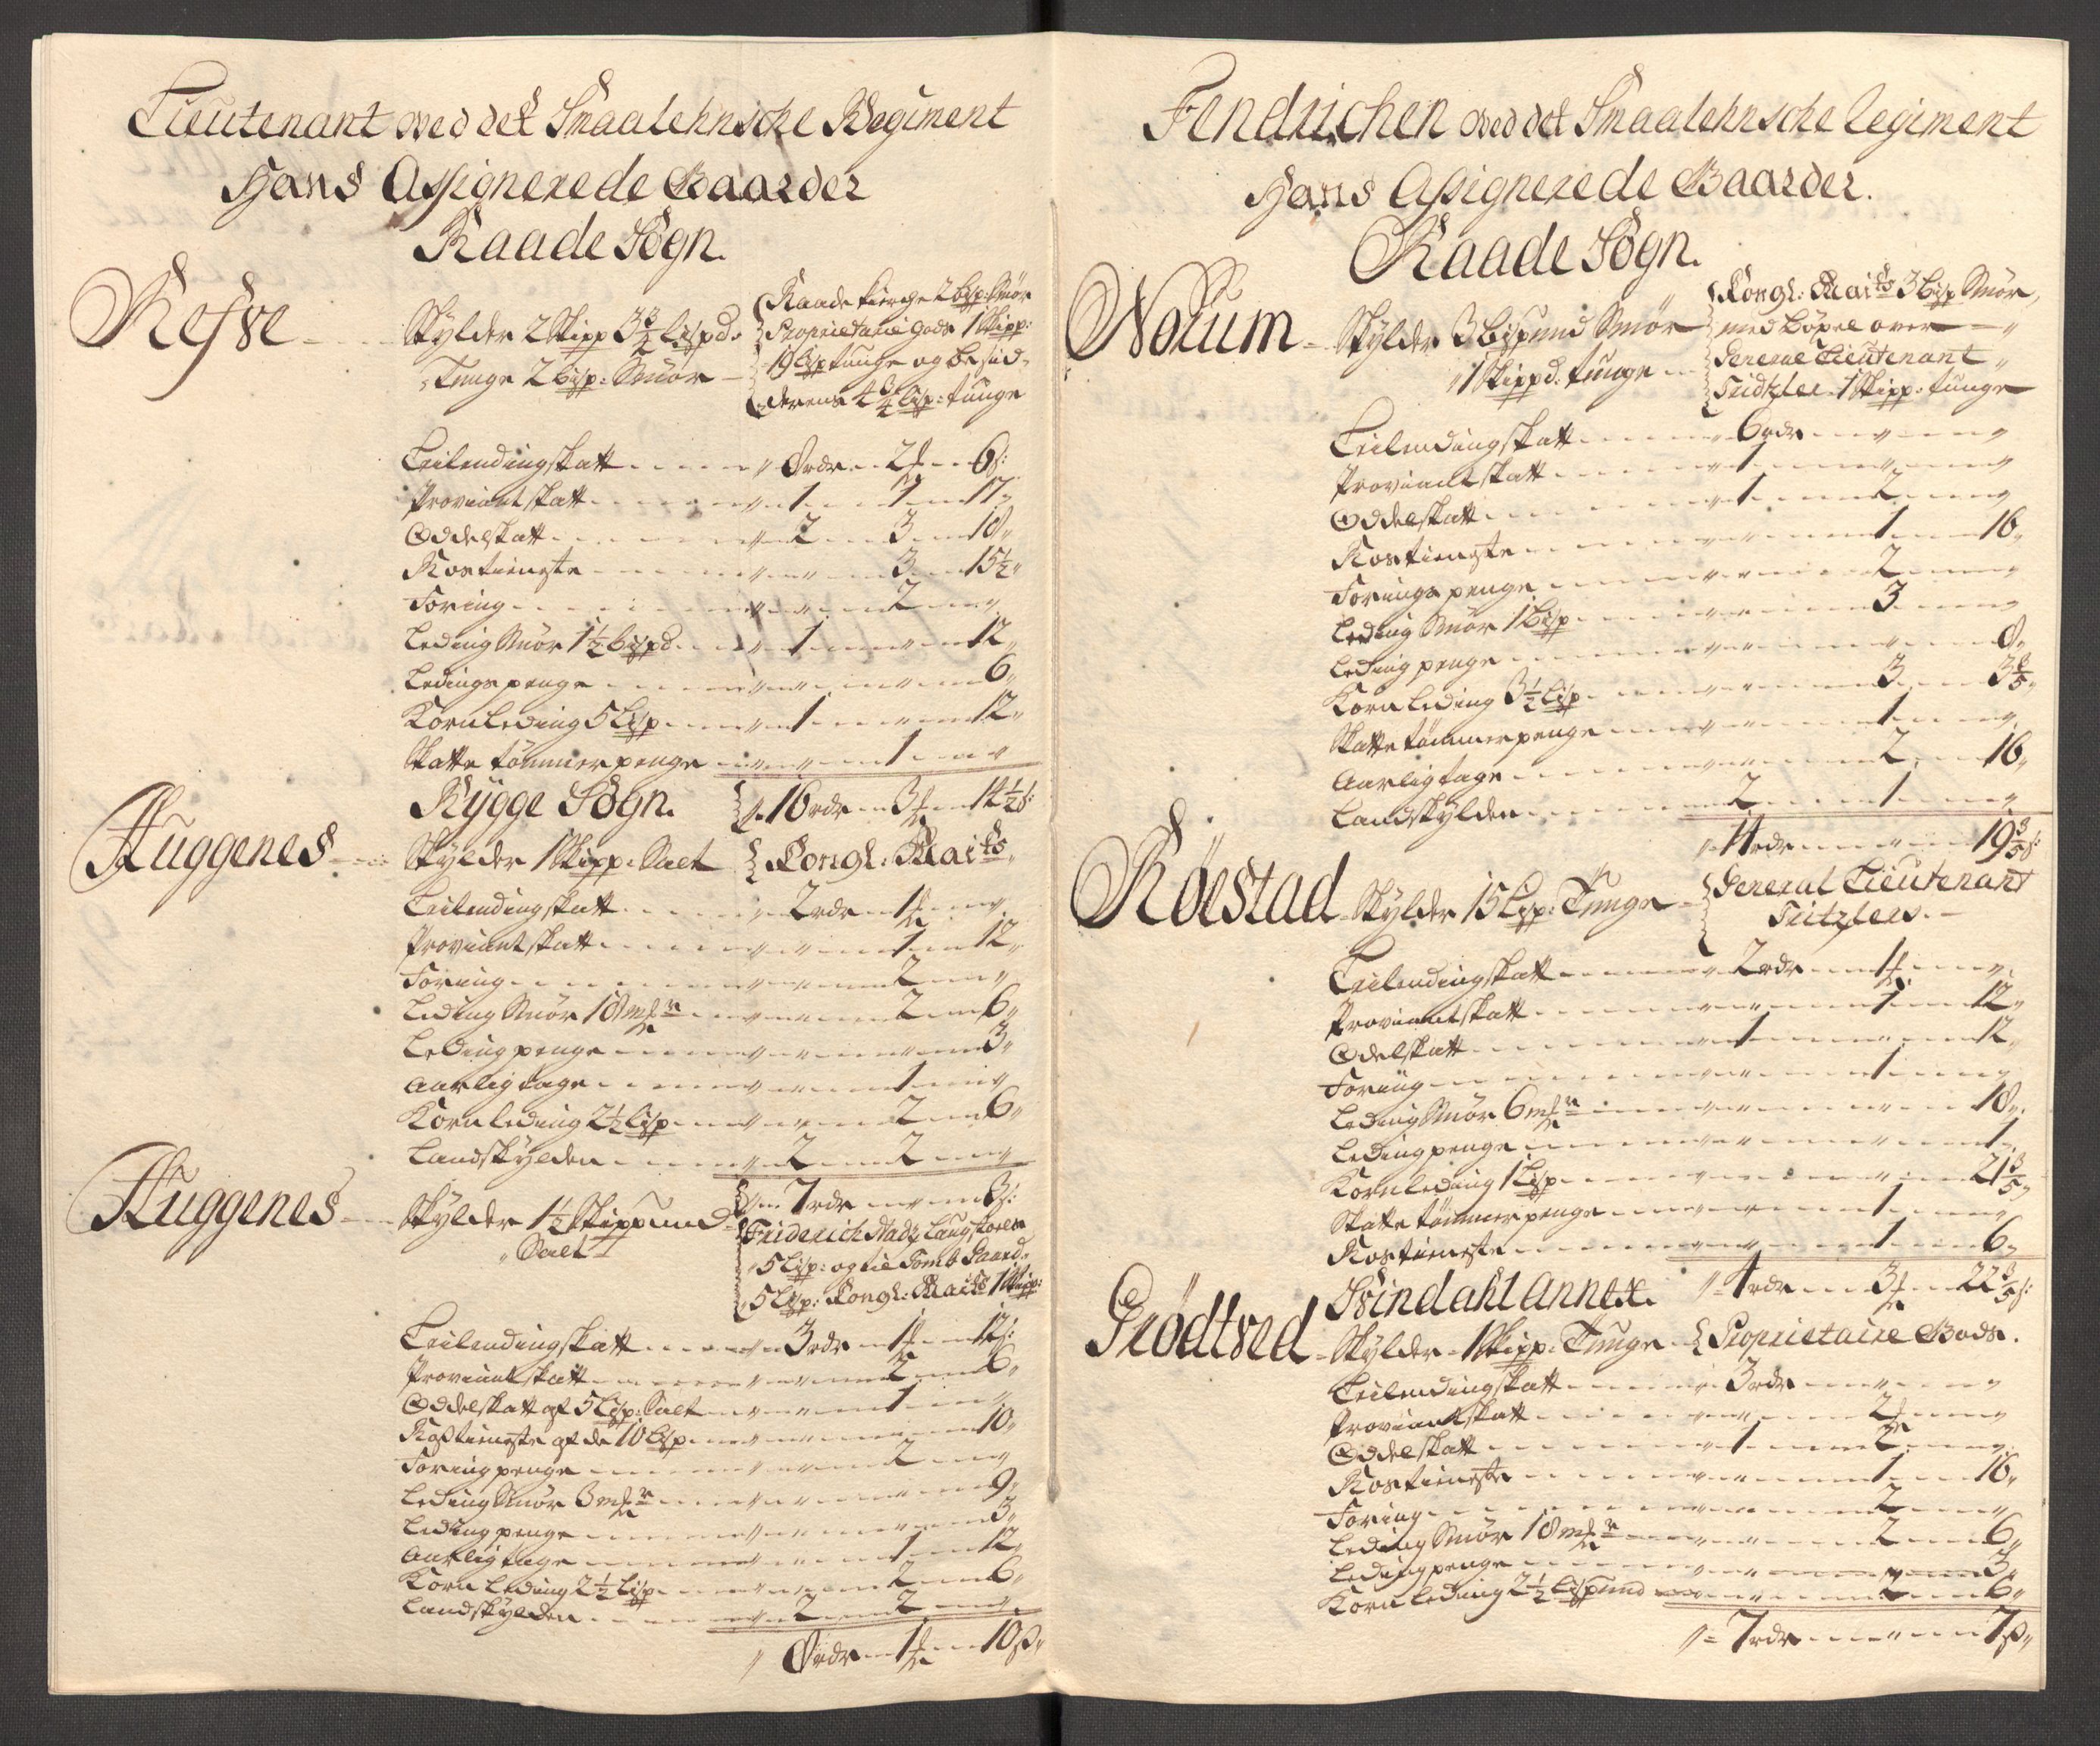 Lieutenant ved det Smaalehnsche Regiment
Hans Assignerede Gaarder
Raade Sogn.
Refsve
Skylder 2 Skipp 3½ lispd.
Tunge 2 Lisp: Smör
Raade Kierche 2 bisp: Smör
Proprietarie gods 1 Skipp:
19 Lisp tunge og besid-
derens 4¾ Lisp: tunge
Leilendingskatt 8 rdr 2 6 s:
Proviantskatt 1 1 17
Oddelskatt 2 3 18
Rostieneste 3 15½
Foring 2
Leding Smör 1½ bispd. 1 12
Ledings penge 6
Korn Leding 5 Lisp 1 12
Skatte tömmer penge 1
16 rdr 3 14½ s:
Rygge Sogn.
Huggenes
Skylder 1 Skipp: Salt
Kongl: Mai:ts
Leilendingskatt 2 rdr 1
Proviantskatt 1 12
Foring 2
Leding Smör 18 mkr 2 6
Leding penge 3
Aarlig tage 1
Korn leding 2½ Lisp 2 6
Landskylden 2 2
7 rdr 3 s:
Huggenes
Skylder 1½ Skippund
Salt
Friderichstads Laugstoele
5 Lisp: og til Tomb Gaard
5 Lisp: Kongl: Maits 1 Skipp:
Leilendingskatt 3 rdr 1 12 s:
Proviantskatt 2 6
Oddelskatt af 5 Lisp: Salt 1
Rostieneste af de 10 Lisp 10
Foring penge 2
Leding Smör 3 mkr 9
Leding penge 3
Aarlig tage 1 12
Korn Leding 2½ Lisp 2 6
Landskylden 2 2
8 rdr 1 10 s
Fendrichen ved det Smaalehnsche Regiment
Hans Assignerede Gaarder.
Raade Sogn.
Norum
Skylder 3 Bispund Smör
1 Skippd: tunge
Kongl: Maits 3 bisp Smör,
med böxel over
General Lieutenant
Tritzler 1 Skipp: tunge
Leilendingskatt 6 rdr
Proviantskatt 1
Oddelskatt 1 2
Rostieneste 1 16
Forings penge 2
Leding Smör 1 Bisp 3
Leding penge 8
Korn Leding 3½ Lisp 3 3⅗
Skatte tömmer penge 1
Aarlig tage 2 16
Landskylden 2 1
14 rdr 19⅗ s:
Röestad
Skylder 15 Lisp: Tunge
General Lieutenant
Tritzlers.
Leilendingskatt 2 rdr 1
Proviantskatt 1 12
Odelskatt 1 12
Foring 1
Leding Smör 6 mkr 18
Leding penge 1
Korn leding 1 Lisp 21⅗
Skatte tömmer penge 1
Rostieneste 1 6
4 rdr 3 22⅗ s:
Svindahl Annex.
Grödtved
Skylder 1 Skipp: Tunge
Proprietaire Gods.
Leilendingskatt 3 rdr
Proviantskatt 2
Oddelskatt 1 2
Rostieneste 1 16
Foring 2
Leding Smör 18 mkr 2 6
Leding penge 3
Korn leding 2½ Lispund 2 6
7 rdr 7 s